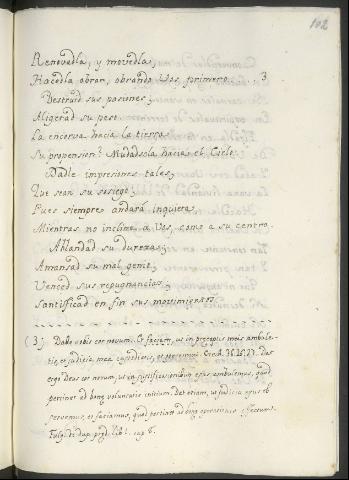 102
Renovadla, y movedla,
Hacedla obrar, obrando Vos primero. 3
Destruid sus pasiones;
Aligerad su peso
La encorva hacia la tierra
Su propension? Mudadsela hacia el Cielo.
Dadle impresiones tales,
Que sean su sosiego;
Pues siempre andará inquieta
Mientras no incline a Vos, como a su centro.
Ablandad su dureza;
Amansad su mal genio;
Venced sus repugnancias;
Santificad en fin sus movimientos.
(3) Dabo vobis cor novum. Et faciam, ut in præceptis meis ambule-
tis, et judicia mea custodiatis, et operemini. Dat
ergo Deus cor novum, ut in justificationibus ejus ambulemus, quod
pertinet ad bonæ voluntatis initium. Dat etiam, ut judicia ejus ob-
servemus, et faciamus, quod pertinet ad bonæ operationis
Fulg. lib. 1. cap. 8.